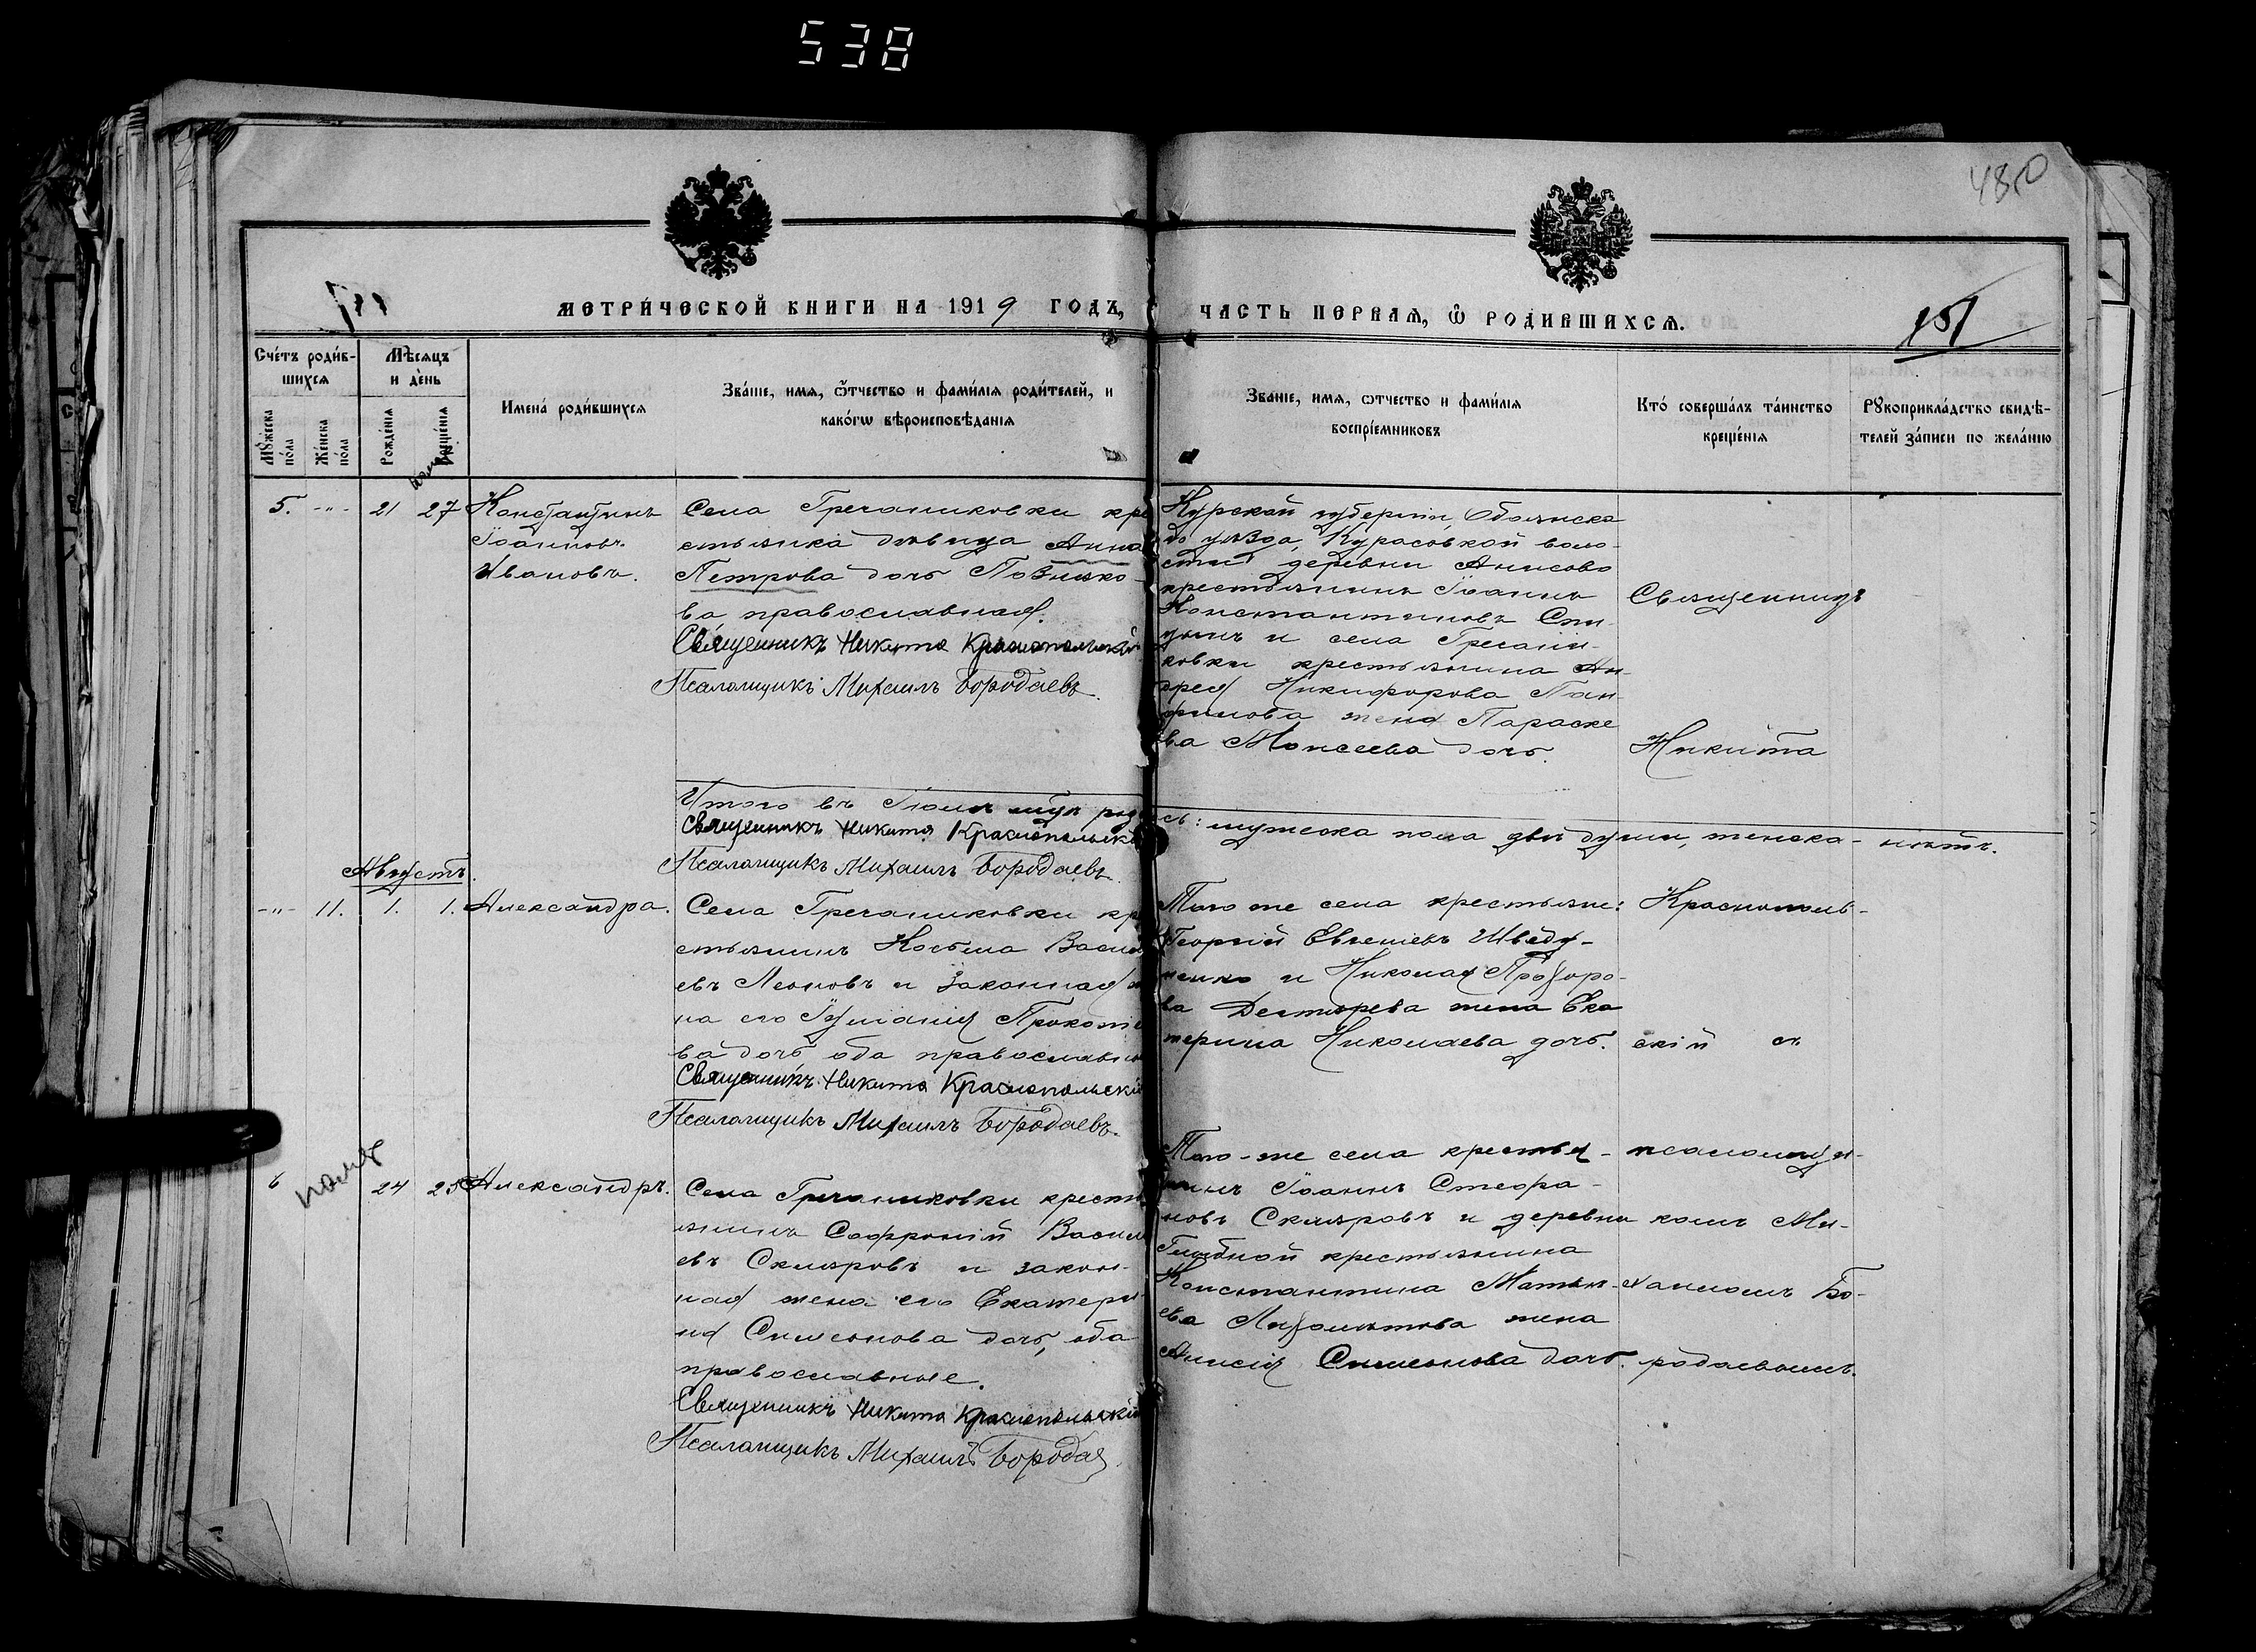 538
480
МЕТРИ́ЧЕСКОЙ КНИГИ НА 1919 ГОДЪ,
ЧАСТЬ ПЕРВАЯ, Ѡ РОДИВШИХСЯ.
151
Сче́тъ роди́в-
шихся
Мѣсяцъ
и де́нь
Мꙋ́жеска
по́ла
Же́нска
по́ла
Рожде́нія
Креще́нія
Имена́ роди́вшихся
Зва́ніе, имя, ѻ҆́тчество и фами́лія роди́телей, и
како́гѡ вѣроисповѣ́данія
Зва́ніе, имя, ѻтчество и фами́лія
воспріе́мниковъ
Кто́ соверша́лъ та́инство
креще́нія
Рꙋкоприкла́дство свидѣ́-
телей за́писи по жела́нію
5. -"- 21 27 Константинъ
Іоанновъ
Ивановъ.
Села Гречаниковки кре
стьянка дѣвица Анна
Петрова дочь Позняко-
ва православная.
Священникъ Никита Краснопольскій
Псаломщикъ Михаилъ Бородаевъ.
Курской губерніи, Обоянска
го уѣзда, Курасовкой воло-
сти деревни
крестьянинъ Іоаннъ
Константиновъ Спи-
цынъ и села Гречани-
ковки крестьянина Ан-
дрея Никифорова Пан-
филова жена Параске
ва Моисеева дочь.
Священникъ
Никита
Итого въ Іюлѣ мцѣ род
сь: мужеска пола двѣ души, женска - нѣтъ.
Священникъ Никита Краснопольскі
Псаломщикъ Михаилъ Бородаевъ
Августъ.
-"- 11. 1. 1. Александра.
Села Гречаниковки кр
стьянинъ Косьма Васил
евъ Леоновъ и законная
на его Іуліанія Прокопіе
ва дочь оба православн
Священникъ Никита Краснопольскій
Псаломщикъ Михаилъ Бородаевъ.
Того же села крестьяне:
Георгій Евгеніевъ Шведу-
ненко и Николая Прохоро-
ва Дегтярева жена Ека
терина Николаева дочь.
Краснополь-
скій съ
6 24 25 Александръ.
Села Гречаниковки кресть
янинъ Софроній Васил
евъ Скляровъ и закон-
ная жена его Екатери
на Симеонова дочь, оба
православные.
Священникъ Никита Краснопольскій
Псаломщикъ Михаилъ Бородае
Того-же села крестья-
нинъ Іоаннъ Стефа-
новъ Скляровъ и деревни
крестьянина
Константина Матѳѣ-
ева жена
Анисія Симеонова дочь.
псаломщи-
комъ Ми-
хаиломъ Бо-
родаевымъ.